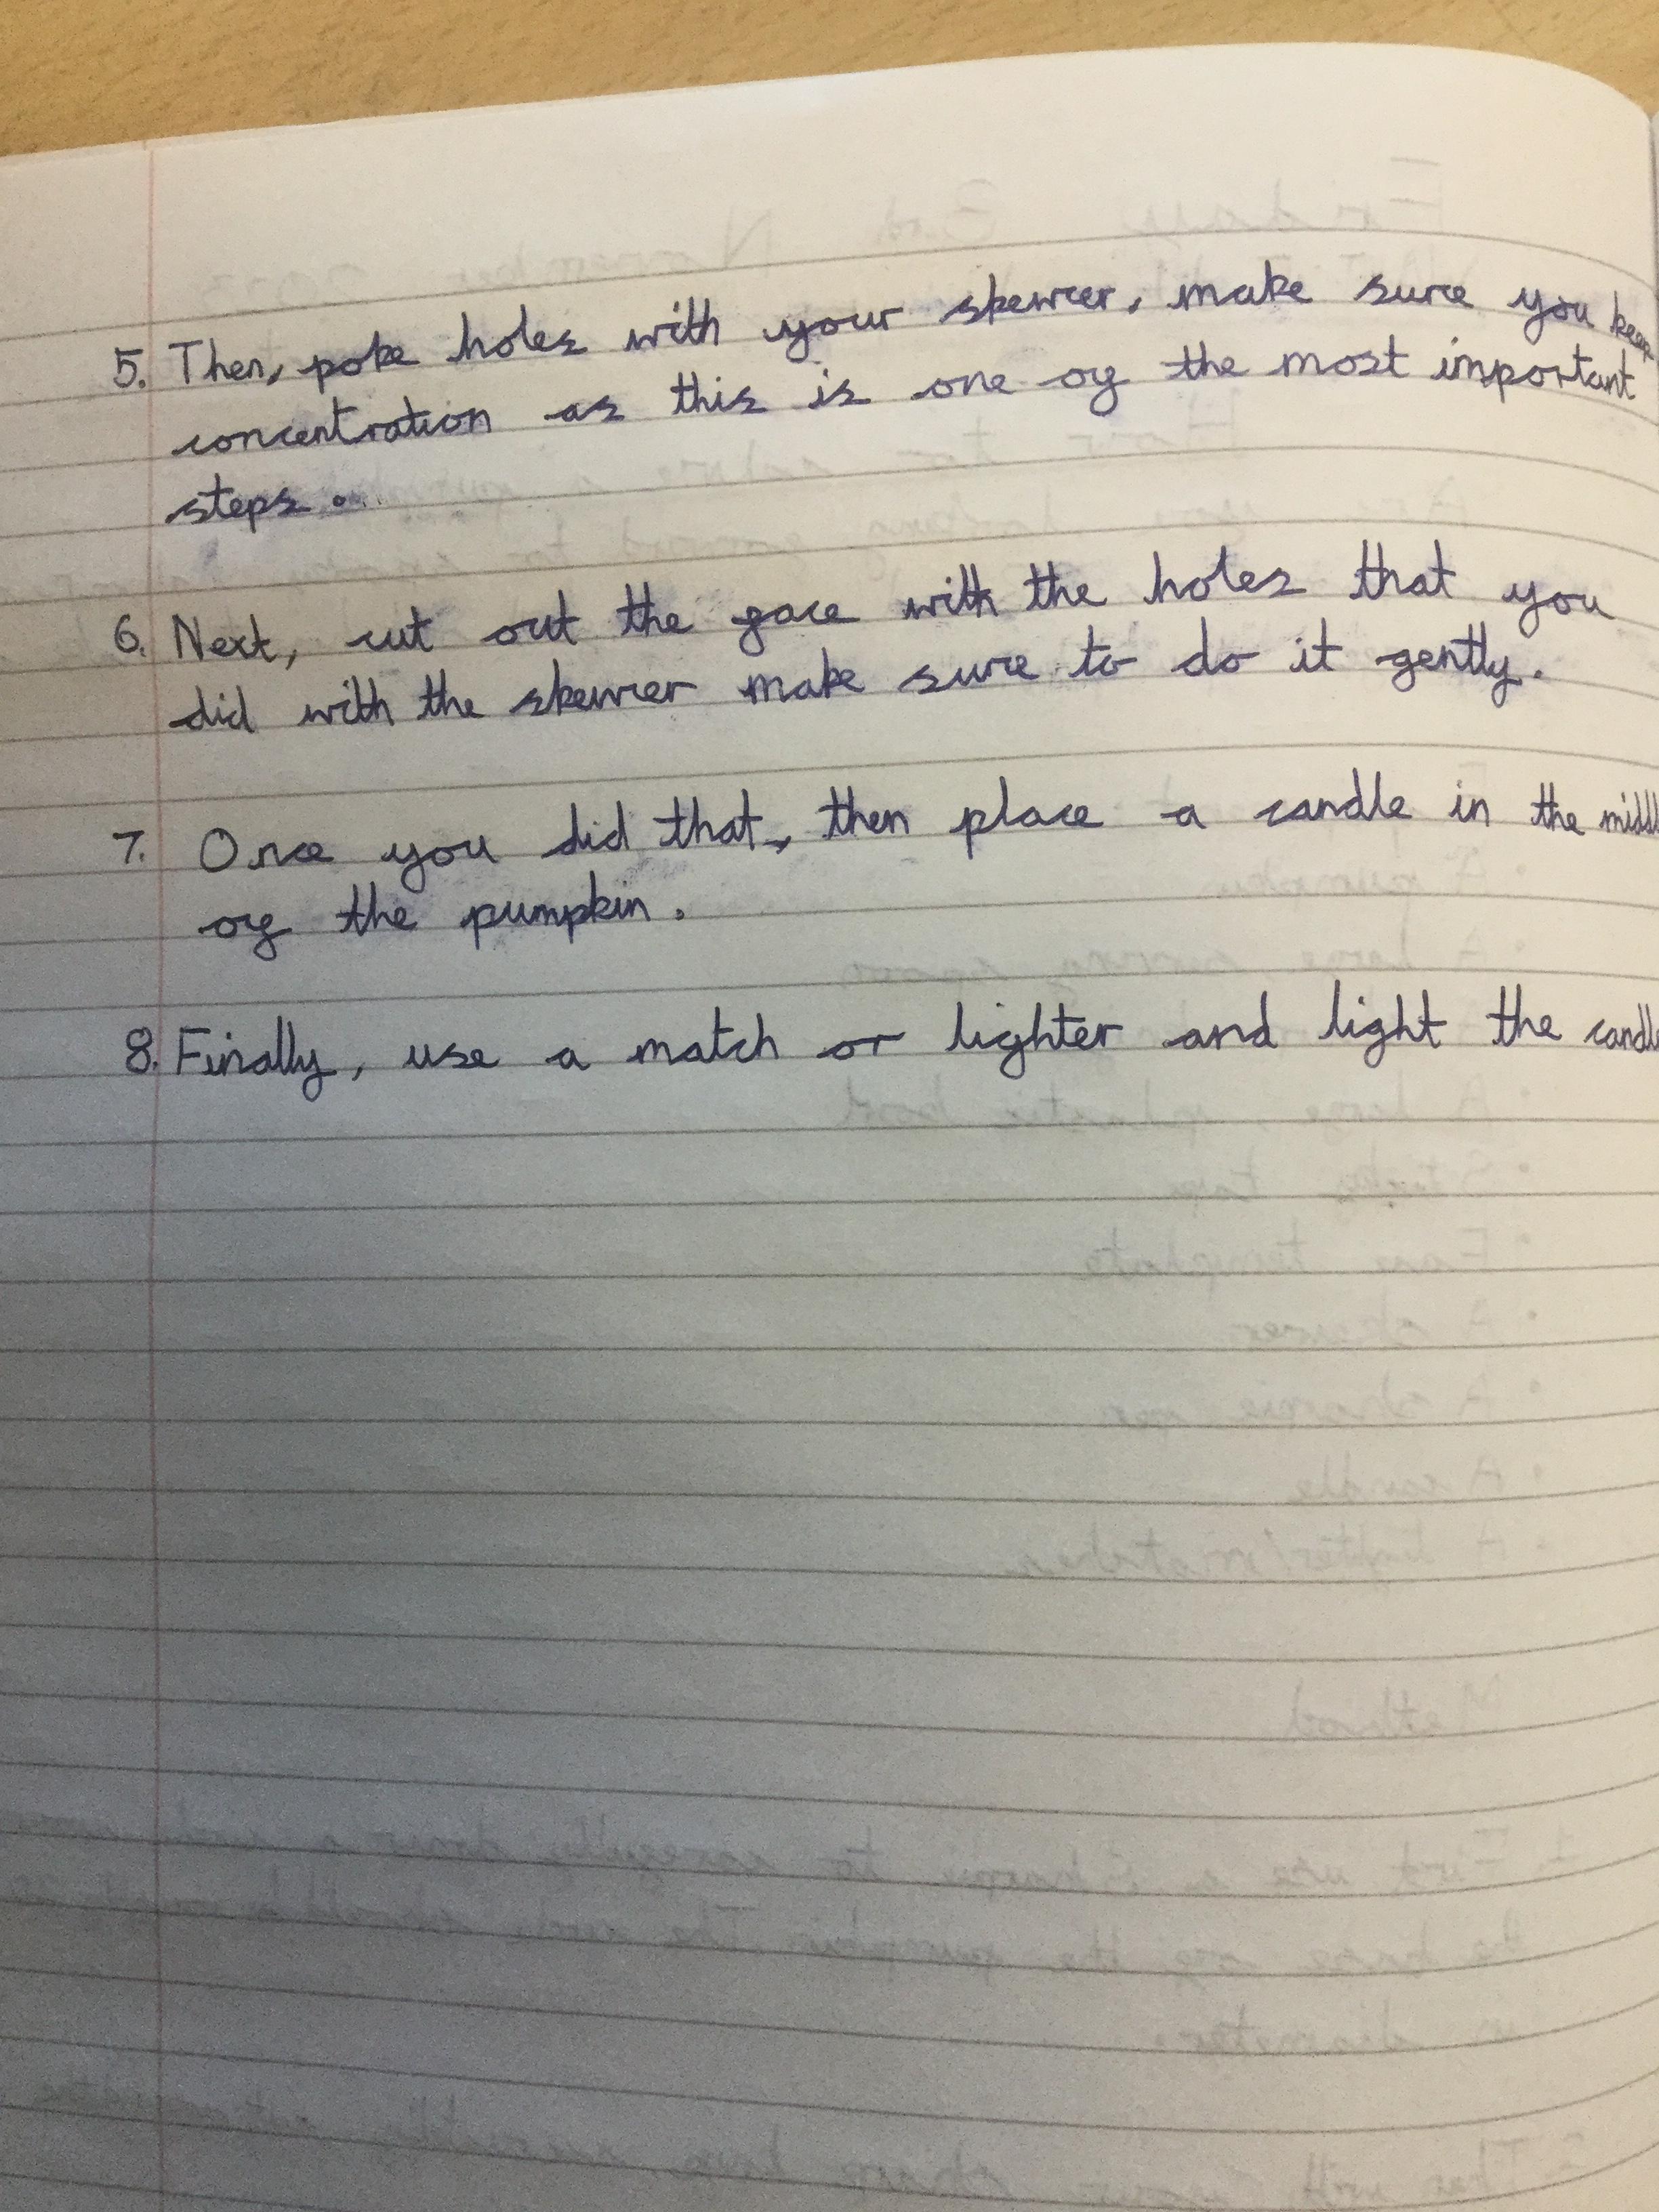 5. Then, poke holes with your skewer, make sure you keep
concentration as this is one of the most important
steps.
6. Next, cut out the face with the holes that you
did with the skewer make sure to do it gently.
7. Once you did that, then place a candle in the middl
of the pumpkin.
8. Finally, use a match or lighter and light the candle